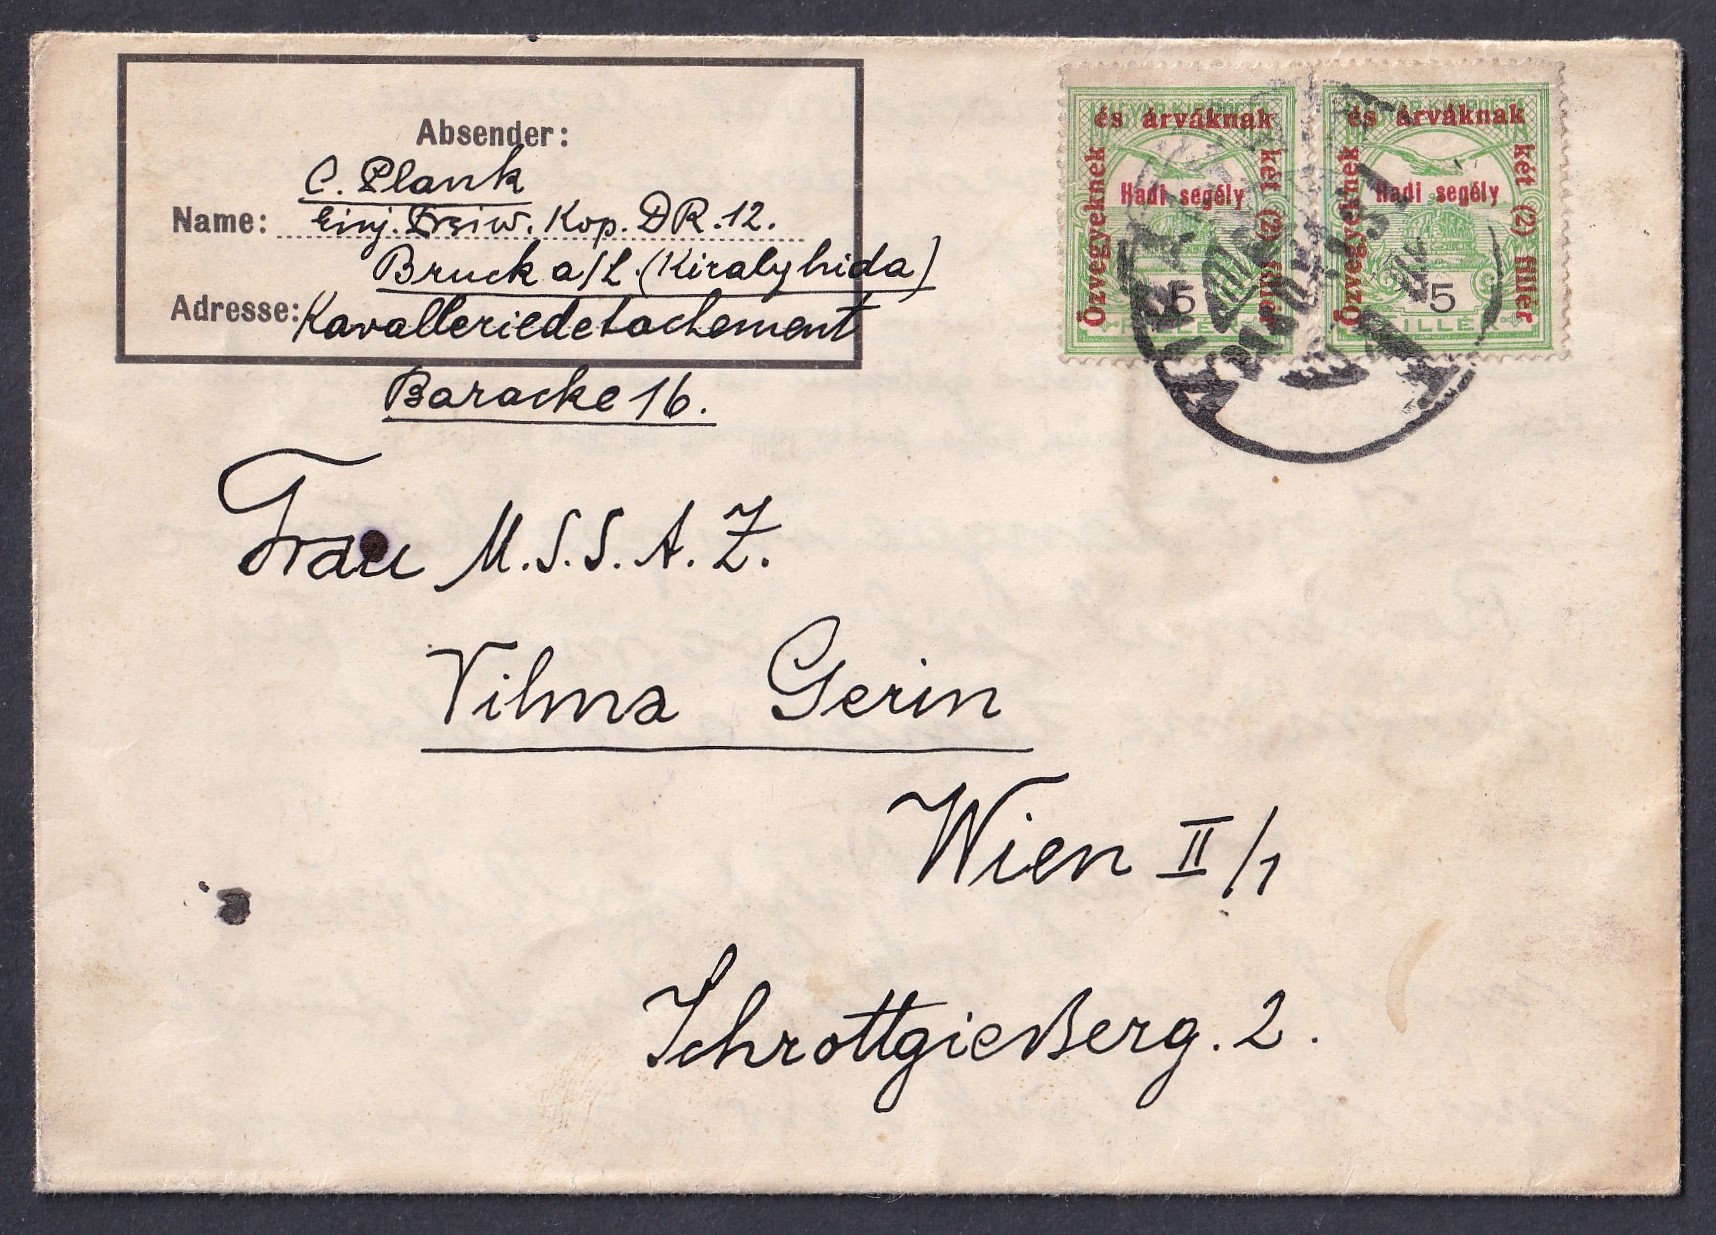 Absender:
C. Plank
Name: Einj. Freiw. Kop. DR. 12.
Bruck a/L. (Kiralyhida)
Adresse: Kavalleriedetachement
Baracke 16.
és árváknak
Özvegyeknek
Hadi segély
két (2) fillér
5
FILLÉR
és árváknak
Özvegyeknek
Hadi segély
két (2) fillér
5
FILLÉR
Frau M.S.S.A.Z.
Vilma Gerin
Wien II/1
Schrottgießerg. 2.